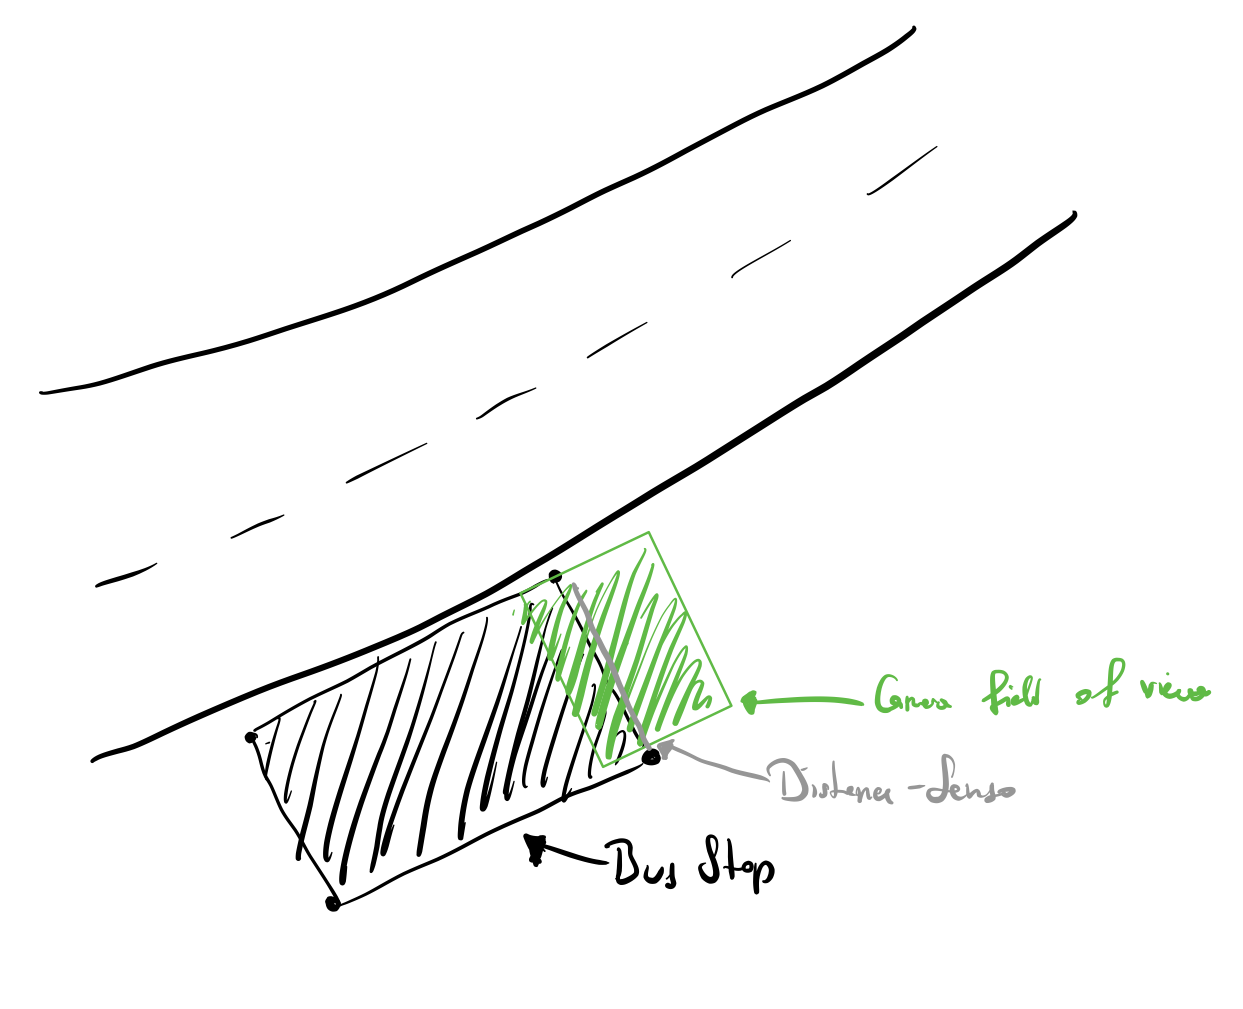 Camera field of view
Distance-Senso
Bus Stop